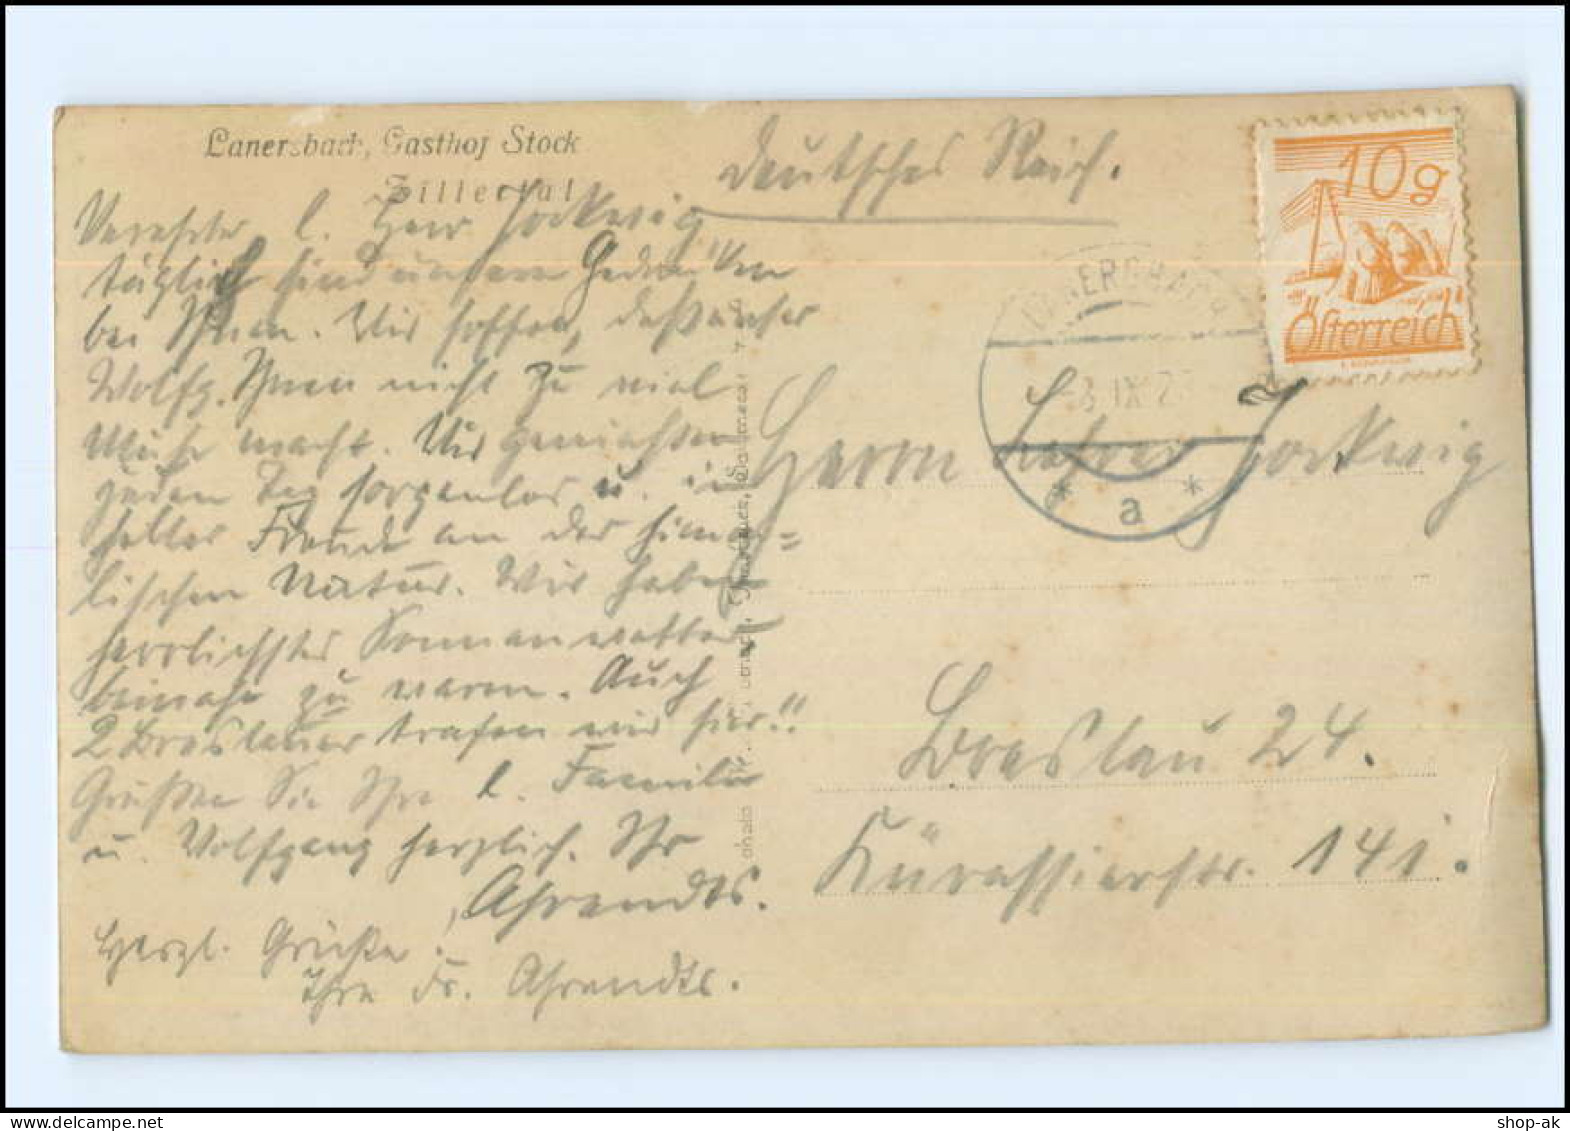 Lanersbach, Gasthof Stock
Zillertal
Verehrter l. Herr Jockwig
täglich sind unsere Gedanken
bei Ihnen. Wir hoffen, daß unser
Wolfg. Ihnen nicht zu viel
Mühe macht. Wir genießen
jeden Tag sorgenlos u. in
heller Freude an der himm=
lischen Natur. Wir haben
herrlichstes Sonnenwetter,
beinahe zu warm. Auch
2 Breslauer trafen wir hier!!
Grüßen Sie Ihre l. Familie
u. Wolfgang herzlich. Ihr
Ahrendts.
Herzl. Grüße
Ihre Fr. Ahrendts.
Deutsches Reich.
10g
Österreich
LANERSBACH
IX
* a *
Herrn Lehrer Jockwig
Breslau 24.
Kürassierstr. 141.
shop-ak